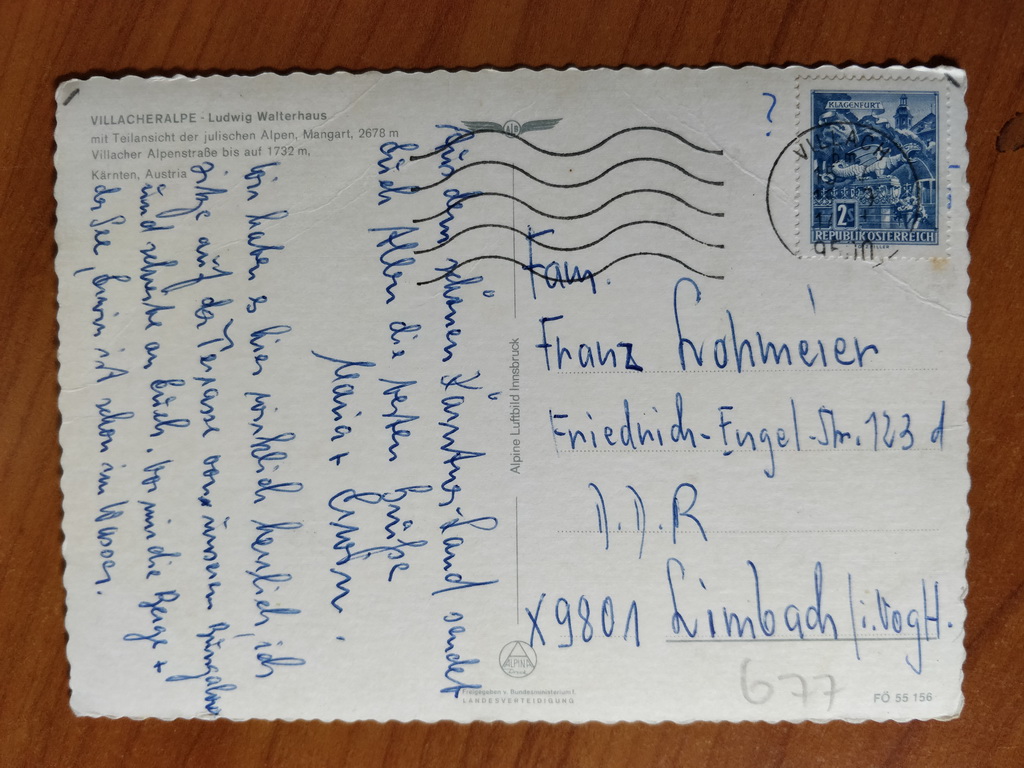 VILLACHERALPE - Ludwig Walterhaus
mit Teilansicht der julischen Alpen, Mangart, 2678 m
Villacher Alpenstraße bis auf 1732 m,
Kärnten, Austria
?
KLAGENFURT
2S
REPUBLIK ÖSTERREICH
VILLACH
Aus dem schönen Kärntner-Land sendet
Euch Allen die besten Grüße
Maria + Erwin.
Wir haben es hier wirklich herrlich, ich
sitze auf der Terasse von unserem Bungalow
und schreibe an Euch. Vor mir die Berge +
der See, Erwin ist schon im Wasser.
Alpine Luftbild Innsbruck
Fam.
Franz Lohmeier
Friedrich-Engel-Str. 123 d
D.D.R
X9801 Limbach /i. Vogtl.
ALPINA
Freigegeben v. Bundesministerium f.
LANDESVERTEIDIGUNG
677
FÖ 55 156